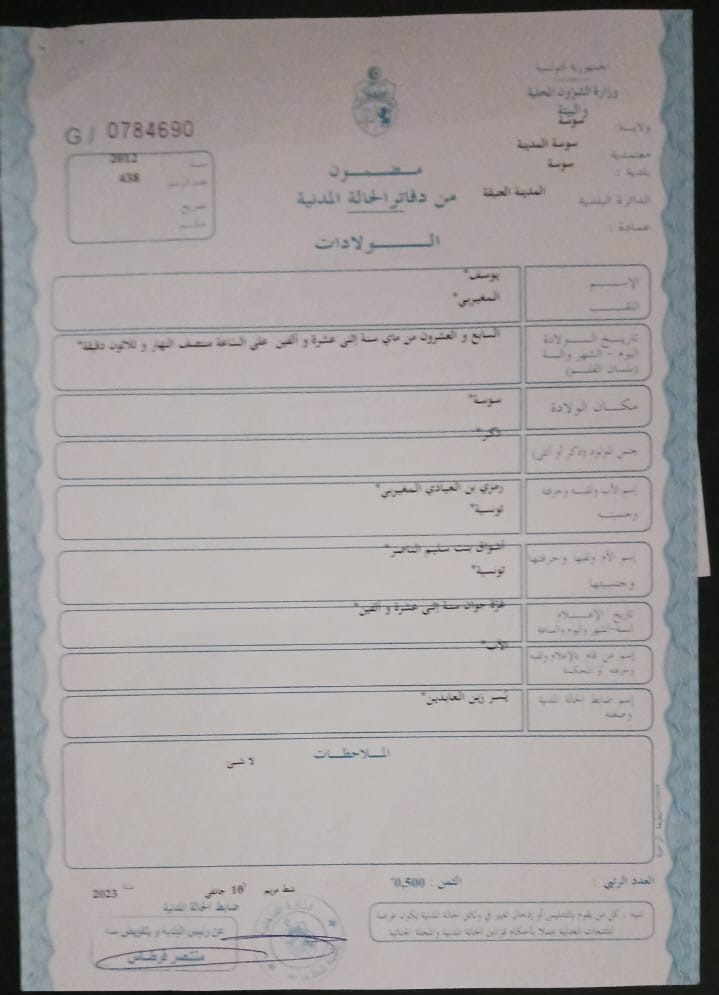 الجمهورية التونسية
وزارة الشؤون المحلية
والبيئة
ولاية : سوسة
معتمدية : سوسة المدينة
بلدية : سوسة
الدائرة البلدية المدينة العتيقة
عمادة :
G / 0784690
سنة 2012
عدد الرسم 438
تصريح
حكم
مضمون
من دفاتر الحالة المدنية
الولادات
الإسم يوسف*
اللقب المغيربي*
تاريخ الولادة
اليوم - الشهر والسنة
(بلسان القلم)
السابع و العشرون من ماي سنة إثنى عشرة و ألفين على الساعة منتصف النهار و ثلاثون دقيقة*
مكان الولادة سوسة*
جنس المولود (ذكر أو أنثى) ذكر*
إسم الأب ولقبه وحرفته رمزي بن العيادي المغيربي*
وجنسيته تونسية*
إسم الأم ولقبها وحرفتها أشواق بنت سليم الناصر*
وجنسيتها تونسية*
تاريخ الإعلام غرة جوان سنة إثنى عشرة و ألفين*
السنة-الشهر واليوم والساعة
إسم من قام بالإعلام ولقبه الأب*
وحرفته أو المحكمة
إسم ضابط الحالة المدنية يُسر زين العابدين*
وصفته
الملاحظات
لا شئ
العدد الرتبي :
الثمن : 0,500
شط مريم 10 جانفي سنة 2023
ضابط الحالة المدنية
عن رئيس البلدية و بتفويض منه
منتصر قرطاس
تنبيه : كل من يقوم بالتدليس أو إدخال تغيير في وثائق الحالة المدنية يكون عرضة
للتتبعات العدلية عملا بأحكام قوانين الحالة المدنية والمجلة الجنائية